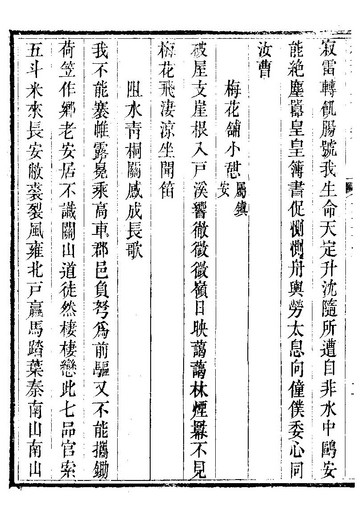 寂雷轉飢腸號我生命天定升沈隨所遭自非水中鷗安
能絶塵囂皇皇簿書促惻惻舟輿勞太息向僮僕委心同
汝曹
梅花鋪小憇屬鎮安
破屋支崖根入戸溪響徹徴徴嶺日映藹藹林煙羃不見
梅花飛淒涼坐開笛
阻水青桐關感成長歌
我不能褰帷露冕乘高車郡邑負弩爲前驅又不能攜鋤
荷笠作鄉老安居不識關山道徒然棲棲戀此七品官索
五斗米來長安敝裘裂風雍北戸羸馬踏葉秦南山南山